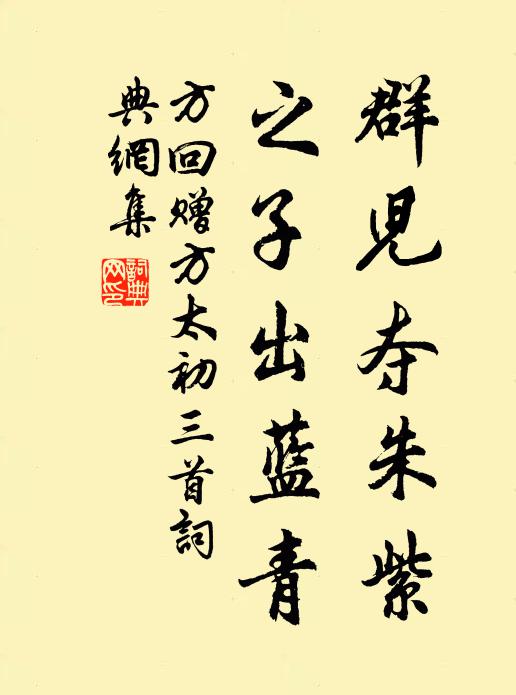 群児夺朱紫
之子出藍青
方回赠方太初三首詞
典網集
詞典
网印